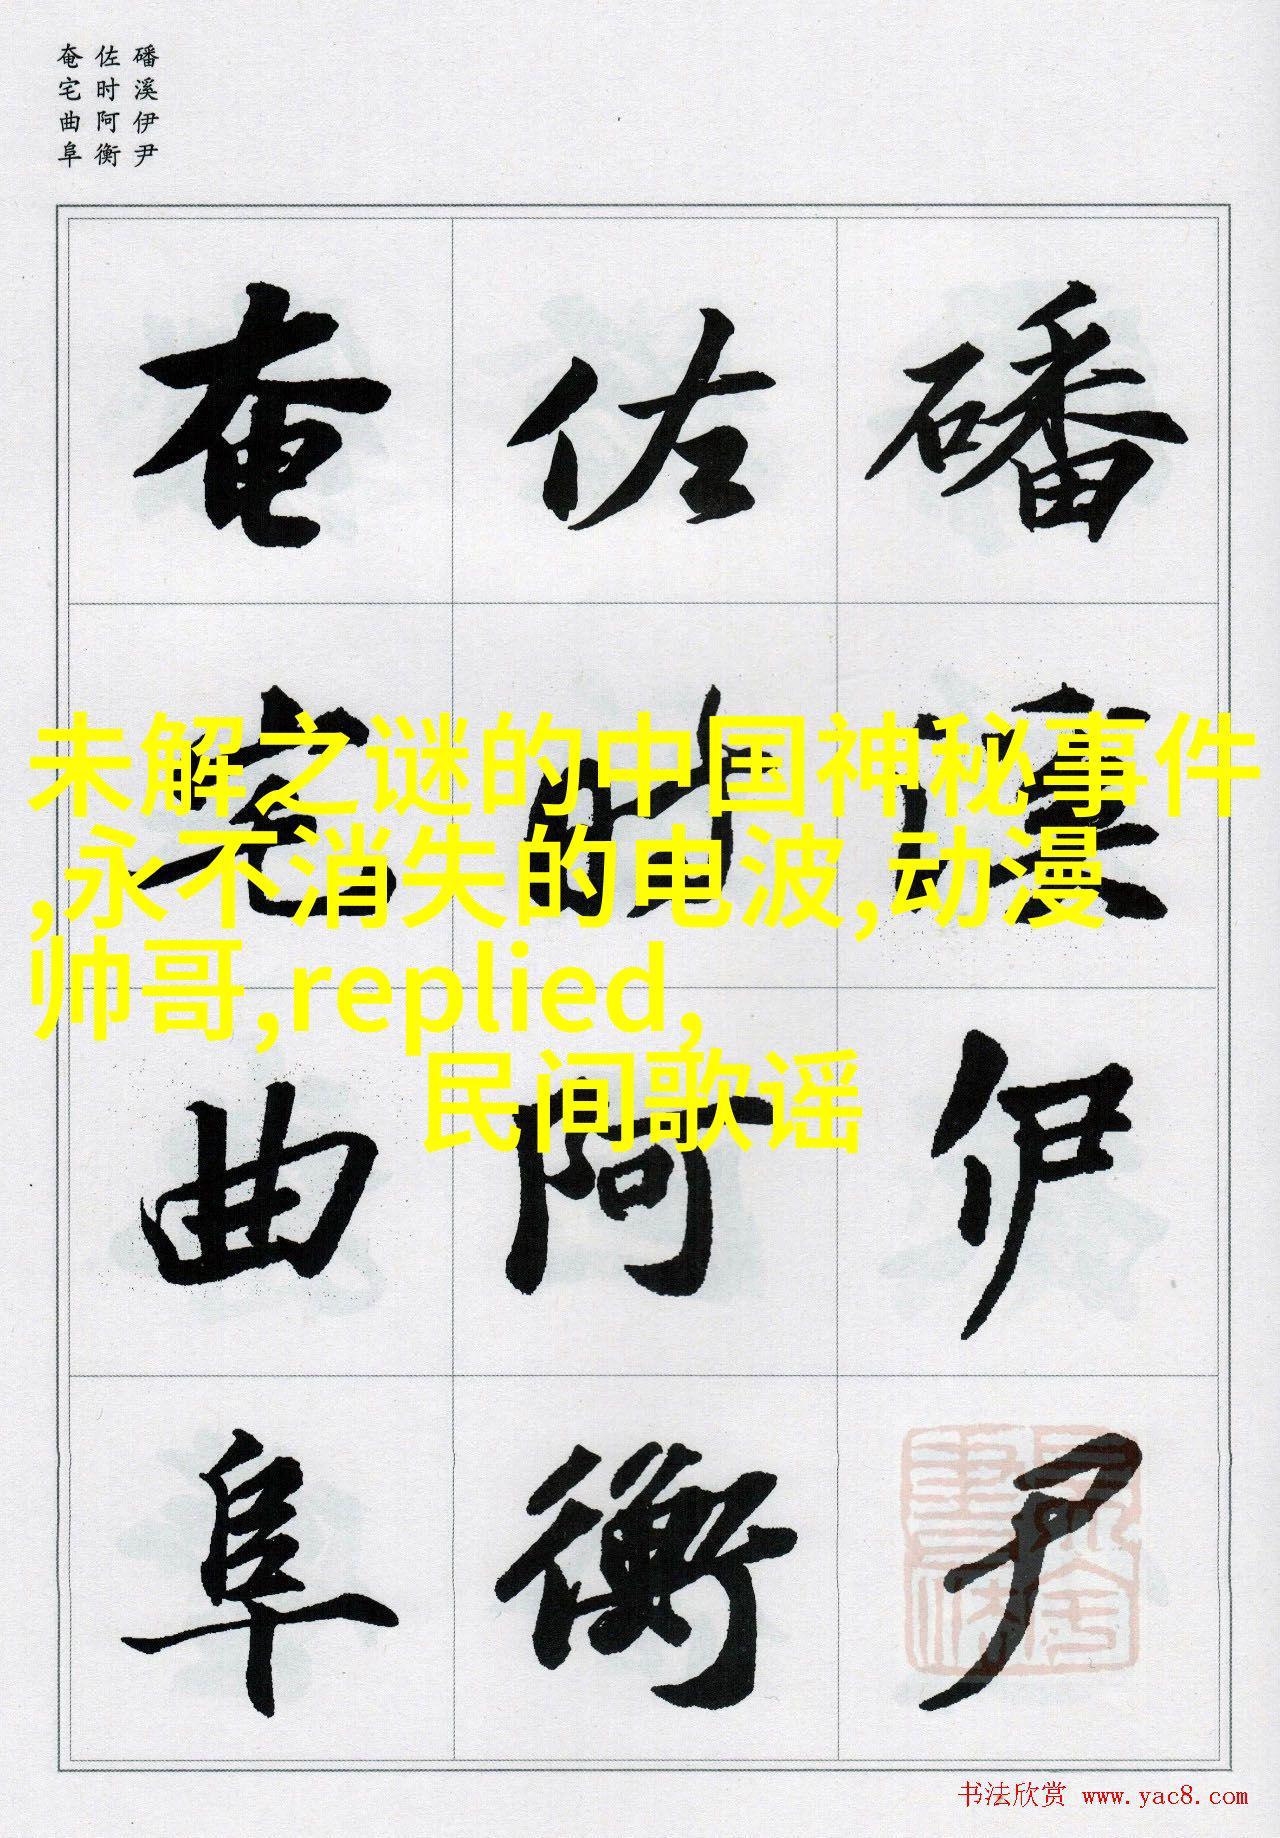 磻溪伊尹
佐时阿衡
奄宅曲阜
磻溪伊尹
佐时阿衡
奄宅曲阜
未解之谜的中国神秘事件
,永不消失的电波,动漫
帅哥,replied,
民间歌谣
书法欣赏 www.yac8.com